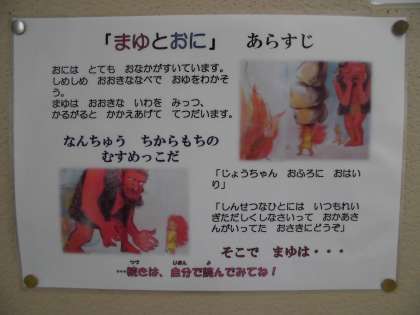 「まゆとおに」 あらすじ
おには とても おなかがすいています。
しめしめ おおきななべで おゆをわかそ
う。
まゆは おおきな いわを みっつ、
かるがると かかえあげて てつだいます。
なんちゅう ちからもちの
むすめっこだ
「じょうちゃん おふろに おはい
り」
「しんせつなひとには いつもれい
ぎただしくしなさいって おかあさ
んがいってた おさきにどうぞ」
そこで まゆは・・・
…続きは、自分で読んでみてね!